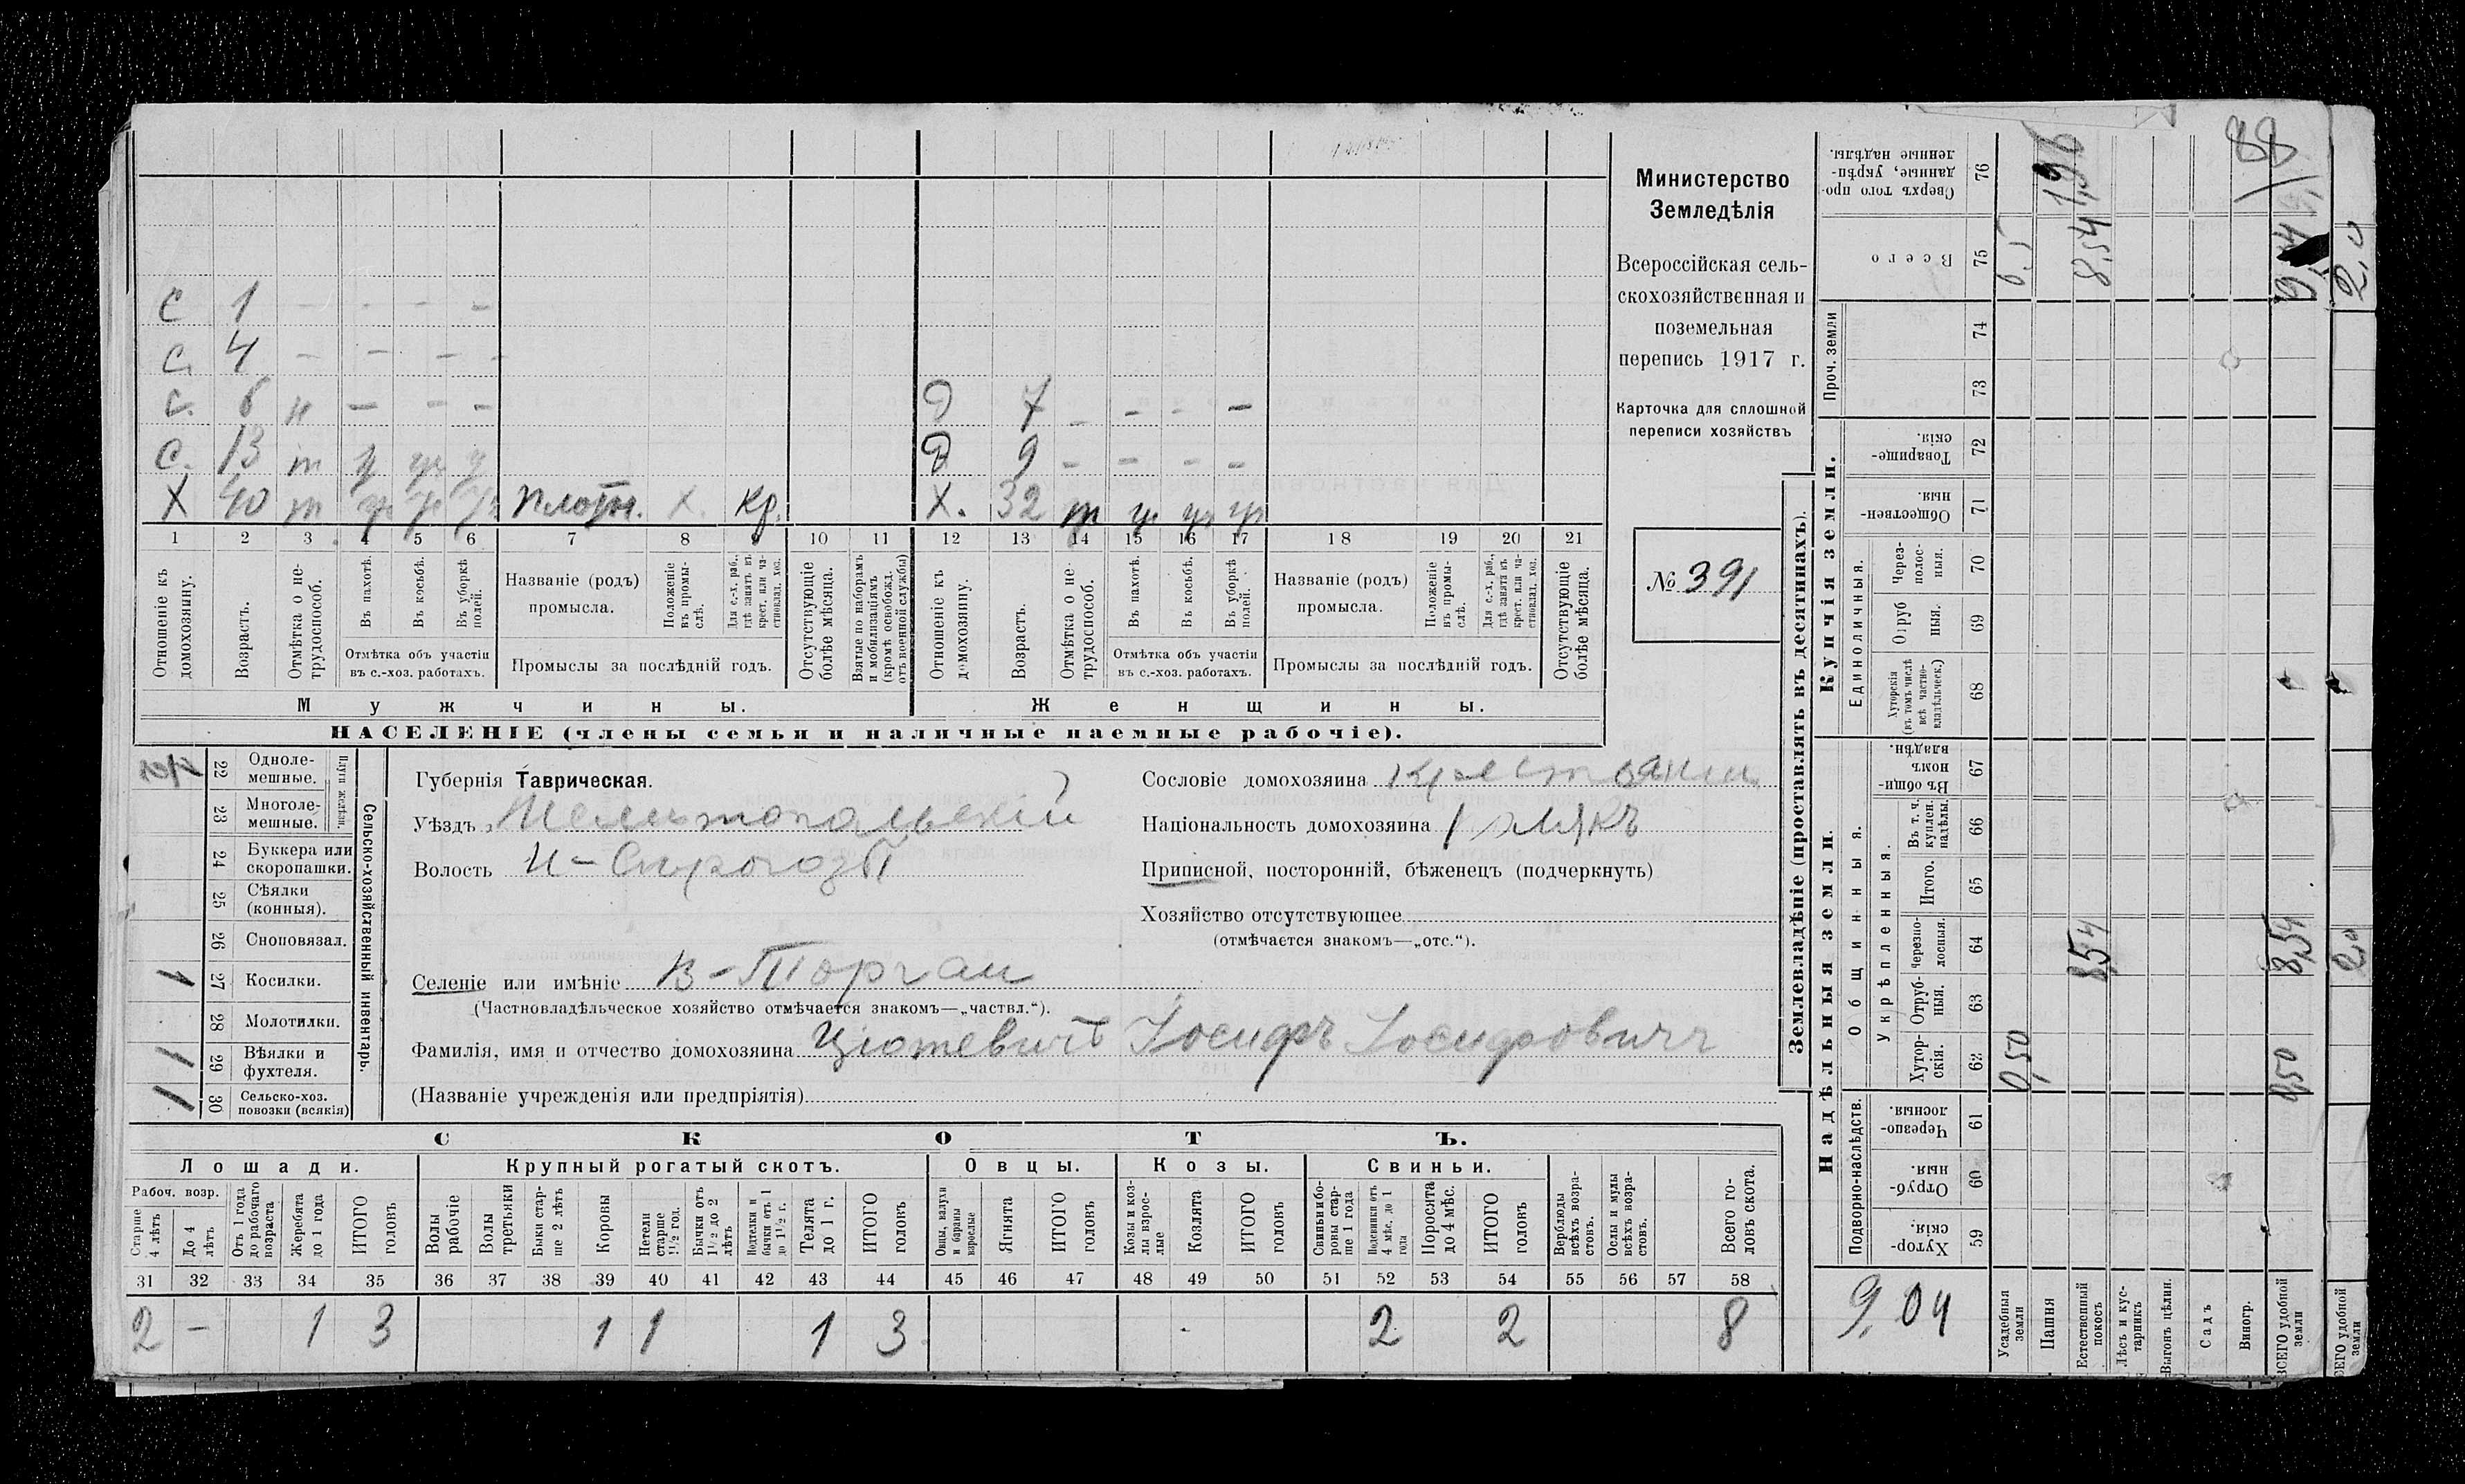 88
Министерство
Земледѣлія
Всероссійская сель-
скохозяйственная и
поземельная
перепись 1917 г.
Карточка для сплошной
переписи хозяйствъ
№ 391
С 1 - - - -
С. 4 - - - -
С. 6 н - - -
С. 13 т
Х 40 т плотн. Х. кр.
Д 7 - - - -
Д 9 - - - -
Х. 32 т
1 2 3 4 5 6 7 8 9 10 11 12 13 14 15 16 17 18 19 20 21
Отношеніе къ домохозяину.
Возрастъ.
Отмѣтка о не-трудоспособ.
Въ пахотѣ.
Въ косьбѣ.
Въ уборкѣ полей.
Отмѣтка объ участіи
въ с.-хоз. работахъ.
Названіе (родъ)
промысла.
Положеніе въ промы-слѣ.
Для с.-х. раб., гдѣ занятъ въ крест. или ча-стновлад. хоз.
Промыслы за послѣдній годъ.
Отсутствующіе болѣе мѣсяца.
Взятые по наборамъ и мобилизаціямъ (кромѣ освобожд. отъ военной службы)
Отношеніе къ домохозяину.
Возрастъ.
Отмѣтка о не-трудоспособ.
Въ пахотѣ.
Въ косьбѣ.
Въ уборкѣ полей.
Отмѣтка объ участіи
въ с.-хоз. работахъ.
Названіе (родъ)
промысла.
Положеніе въ промы-слѣ.
Для с.-х. раб., гдѣ занята въ крест. или ча-стновлад. хоз.
Промыслы за послѣдній годъ.
Отсутствующіе болѣе мѣсяца.
Мужчины.
Женщины.
НАСЕЛЕНІЕ (члены семьи и наличные наемные рабочіе).
22 Одноле-мешные.
23 Многоле-мешные.
Плуги желѣзн.
24 Буккера или скоропашки.
25 Сѣялки (конныя).
26 Сноповязал.
1 27 Косилки.
28 Молотилки.
1 29 Вѣялки и фухтеля.
1 30 Сельско-хоз. повозки (всякія)
Сельско-хозяйственный инвентарь.
Губернія Таврическая.
Уѣздъ Мелитопольскій
Волость Н-Сирогозы
Селеніе или имѣніе В-Торгаи
(Частновладѣльческое хозяйство отмѣчается знакомъ—„частвл.“).
Фамилія, имя и отчество домохозяина Цютевичъ Іосифъ Іосифовичъ
(Названіе учрежденія или предпріятія)
Сословіе домохозяина крестьянин
Національность домохозяина полякъ
Приписной, посторонній, бѣженецъ (подчеркнуть)
Хозяйство отсутствующее
(отмѣчается знакомъ—„отс.“).
СКОТЪ.
Лошади. Крупный рогатый скотъ. Овцы. Козы. Свиньи.
Рабоч. возр.
Старше 4 лѣтъ
До 4 лѣтъ
Отъ 1 года до рабочаго возраста
Жеребята до 1 года
ИТОГО головъ
Волы рабочіе
Волы третьяки
Быки стар-ше 2 лѣтъ
Коровы
Нетели старше 1½ год.
Бычки отъ 1½ до 2 лѣтъ
Подтелки и бычки отъ 1 до 1½ г.
Телята до 1 г.
ИТОГО головъ
Овцы, валухи и бараны взрослые
Ягнята
ИТОГО головъ
Козы и коз-лы взрос-лые
Козлята
ИТОГО головъ
Свиньи и бо-ровы стар-ше 1 года
Подсвинки отъ 4 мѣс. до 1 года
Поросята до 4 мѣс.
ИТОГО головъ
Верблюды всѣхъ возра-стовъ.
Ослы и мулы всѣхъ возра-стовъ.
Всего го-ловъ скота.
31 32 33 34 35 36 37 38 39 40 41 42 43 44 45 46 47 48 49 50 51 52 53 54 55 56 57 58
2 - 1 3 1 1 1 3 2 2 8
Землевладѣніе (проставлять въ десятинахъ).
Надѣльныя земли.
Купчія земли.
Проч. земли
Подворно-наслѣдств.
Общинныя.
Укрѣпленныя.
Единоличныя.
Хутор-скія. 59
Отруб-ныя. 60
Черезпо-лосныя. 61
Хутор-скія. 62
Отруб-ныя. 63
Черезпо-лосныя. 64
Итого. 65
Въ т. ч. куплен. надѣлы. 66
Въ общин-номъ владѣн. 67
Хуторскія (въ томъ числѣ всѣ частно-владѣльческ.) 68
Отруб-ныя. 69
Через-полос-ныя. 70
Обществен-ныя. 71
Товарище-скія. 72
73
74
Всего 75
Сверхъ того про-данные, укрѣп-ленные надѣлы. 76
9,04
Усадебныя земли
0,50
Пашня
Естественный покосъ
8,54
8,54
1,96
Лѣсъ и кус-тарникъ
Выгонъ цѣлин.
Садъ
Виногр.
ВСЕГО удобной земли
0,50
8,54
2,0
2,0